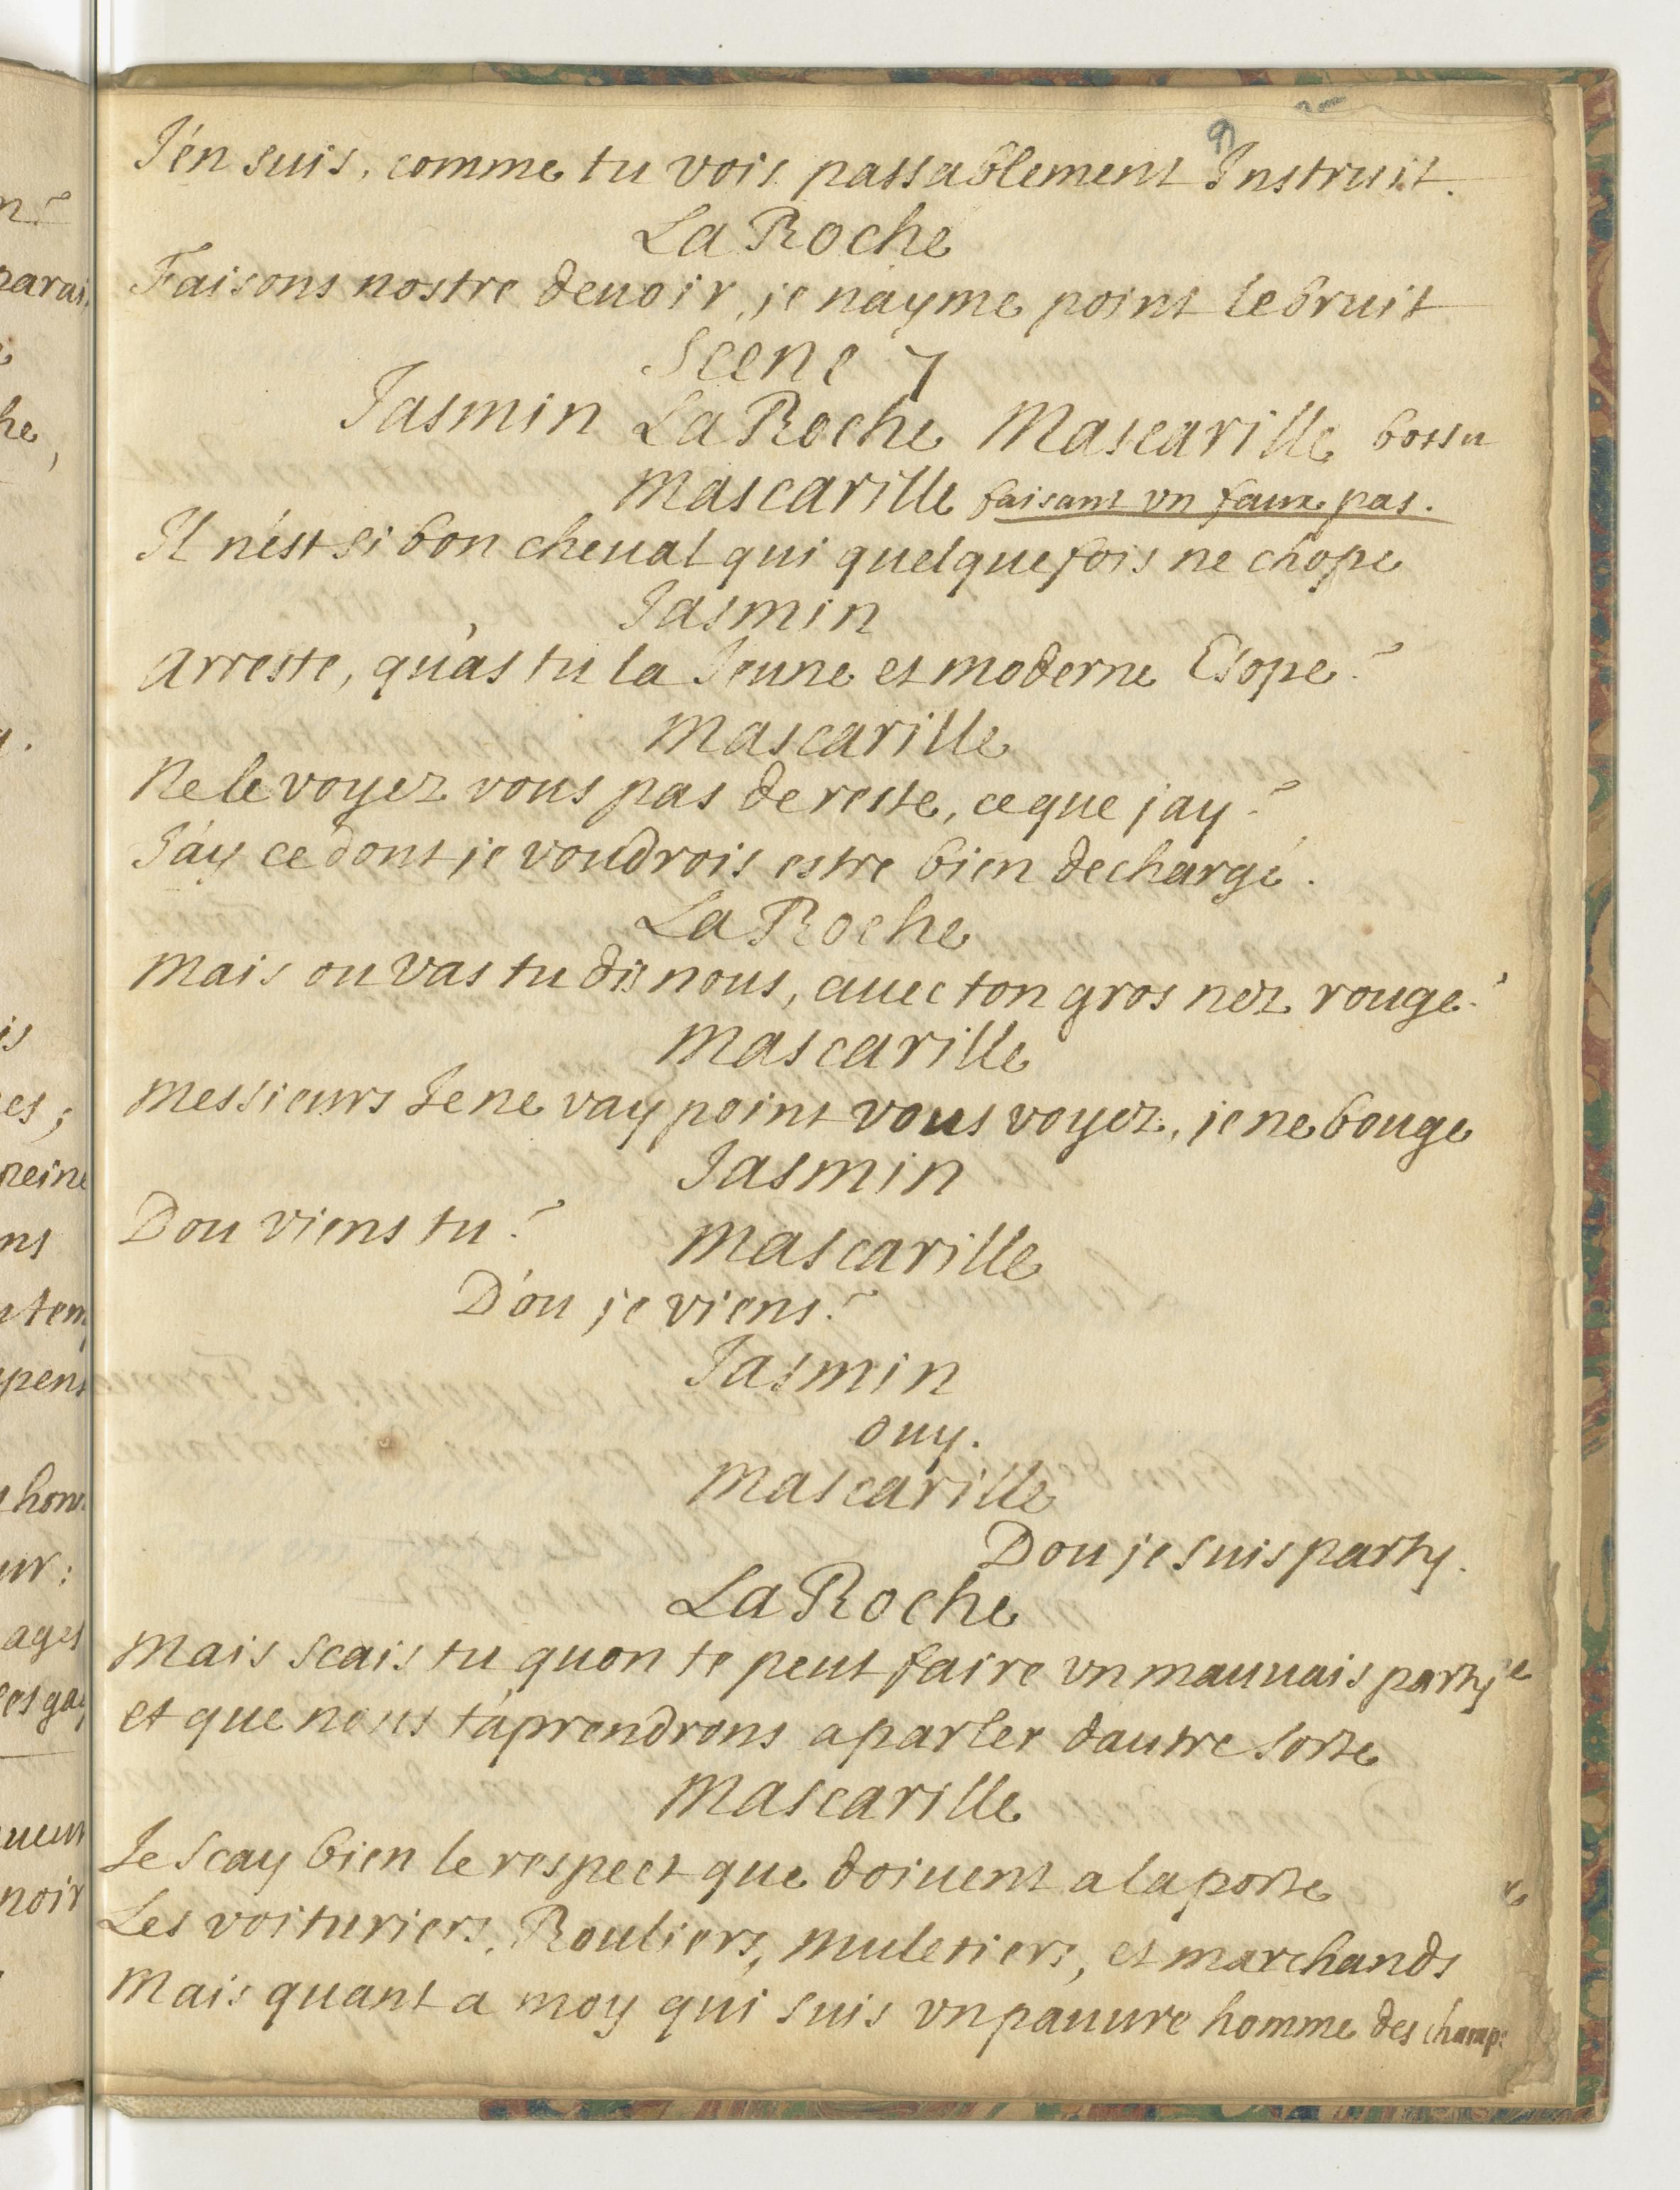 9
J'en suis, comme tu vois passablement Instruit.
La Roche
Faisons nostre deuoir, je n'ayme point le bruit
Scene 7
Jasmin La Roche Mascarille bossu
Mascarille faisant vn faux pas.
Il n'est si bon cheual qui quelque fois ne chope
Jasmin
Arreste, qu'as tu la Jeune et moderne Esope?
Mascarille
Ne le voyez vous pas de reste, ce que j'ay?
J'ay ce dont je voudrois estre bien dechargé.
La Roche
Mais ou vas tu dis nous, auec ton gros nez rouge?
Mascarille
Messieurs Je ne vay point vous voyez, je ne bouge
Jasmin
Dou viens tu?
Mascarille
D'ou je viens?
Jasmin
ouy.
Mascarille
Dou je suis party.
La Roche
Mais scais tu quon te peut faire vn mauuais party
et que nous t'aprendrons a parler dautre sorte
Mascarille
Je scay bien le respect que doiuent a la porte
Les voituriers, Rouliers, muletiers, et marchands
Mais quant a moy qui suis vn pauure homme des champs